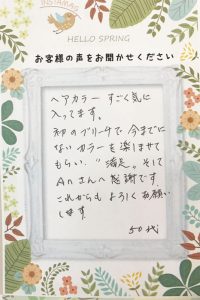 INSTAMAG
HELLO SPRING
お客様の声をお聞かせください
ヘアカラー すごく気に
入ってます。
初のブリーチで 今までに
ないカラーを楽しませて
もらい、"満足。そして
Anさんへ感謝です
これからも よろしくお願い
します